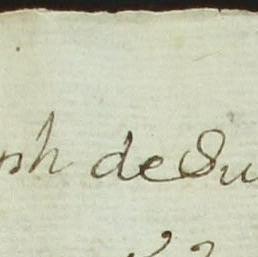 ph de Su